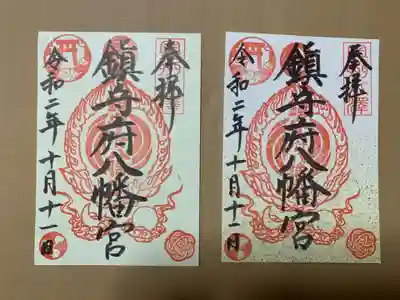 奉拝
鎮守府八幡宮
令和二年十月十一日
奉拝
鎮守府八幡宮
令和二年十月十一日